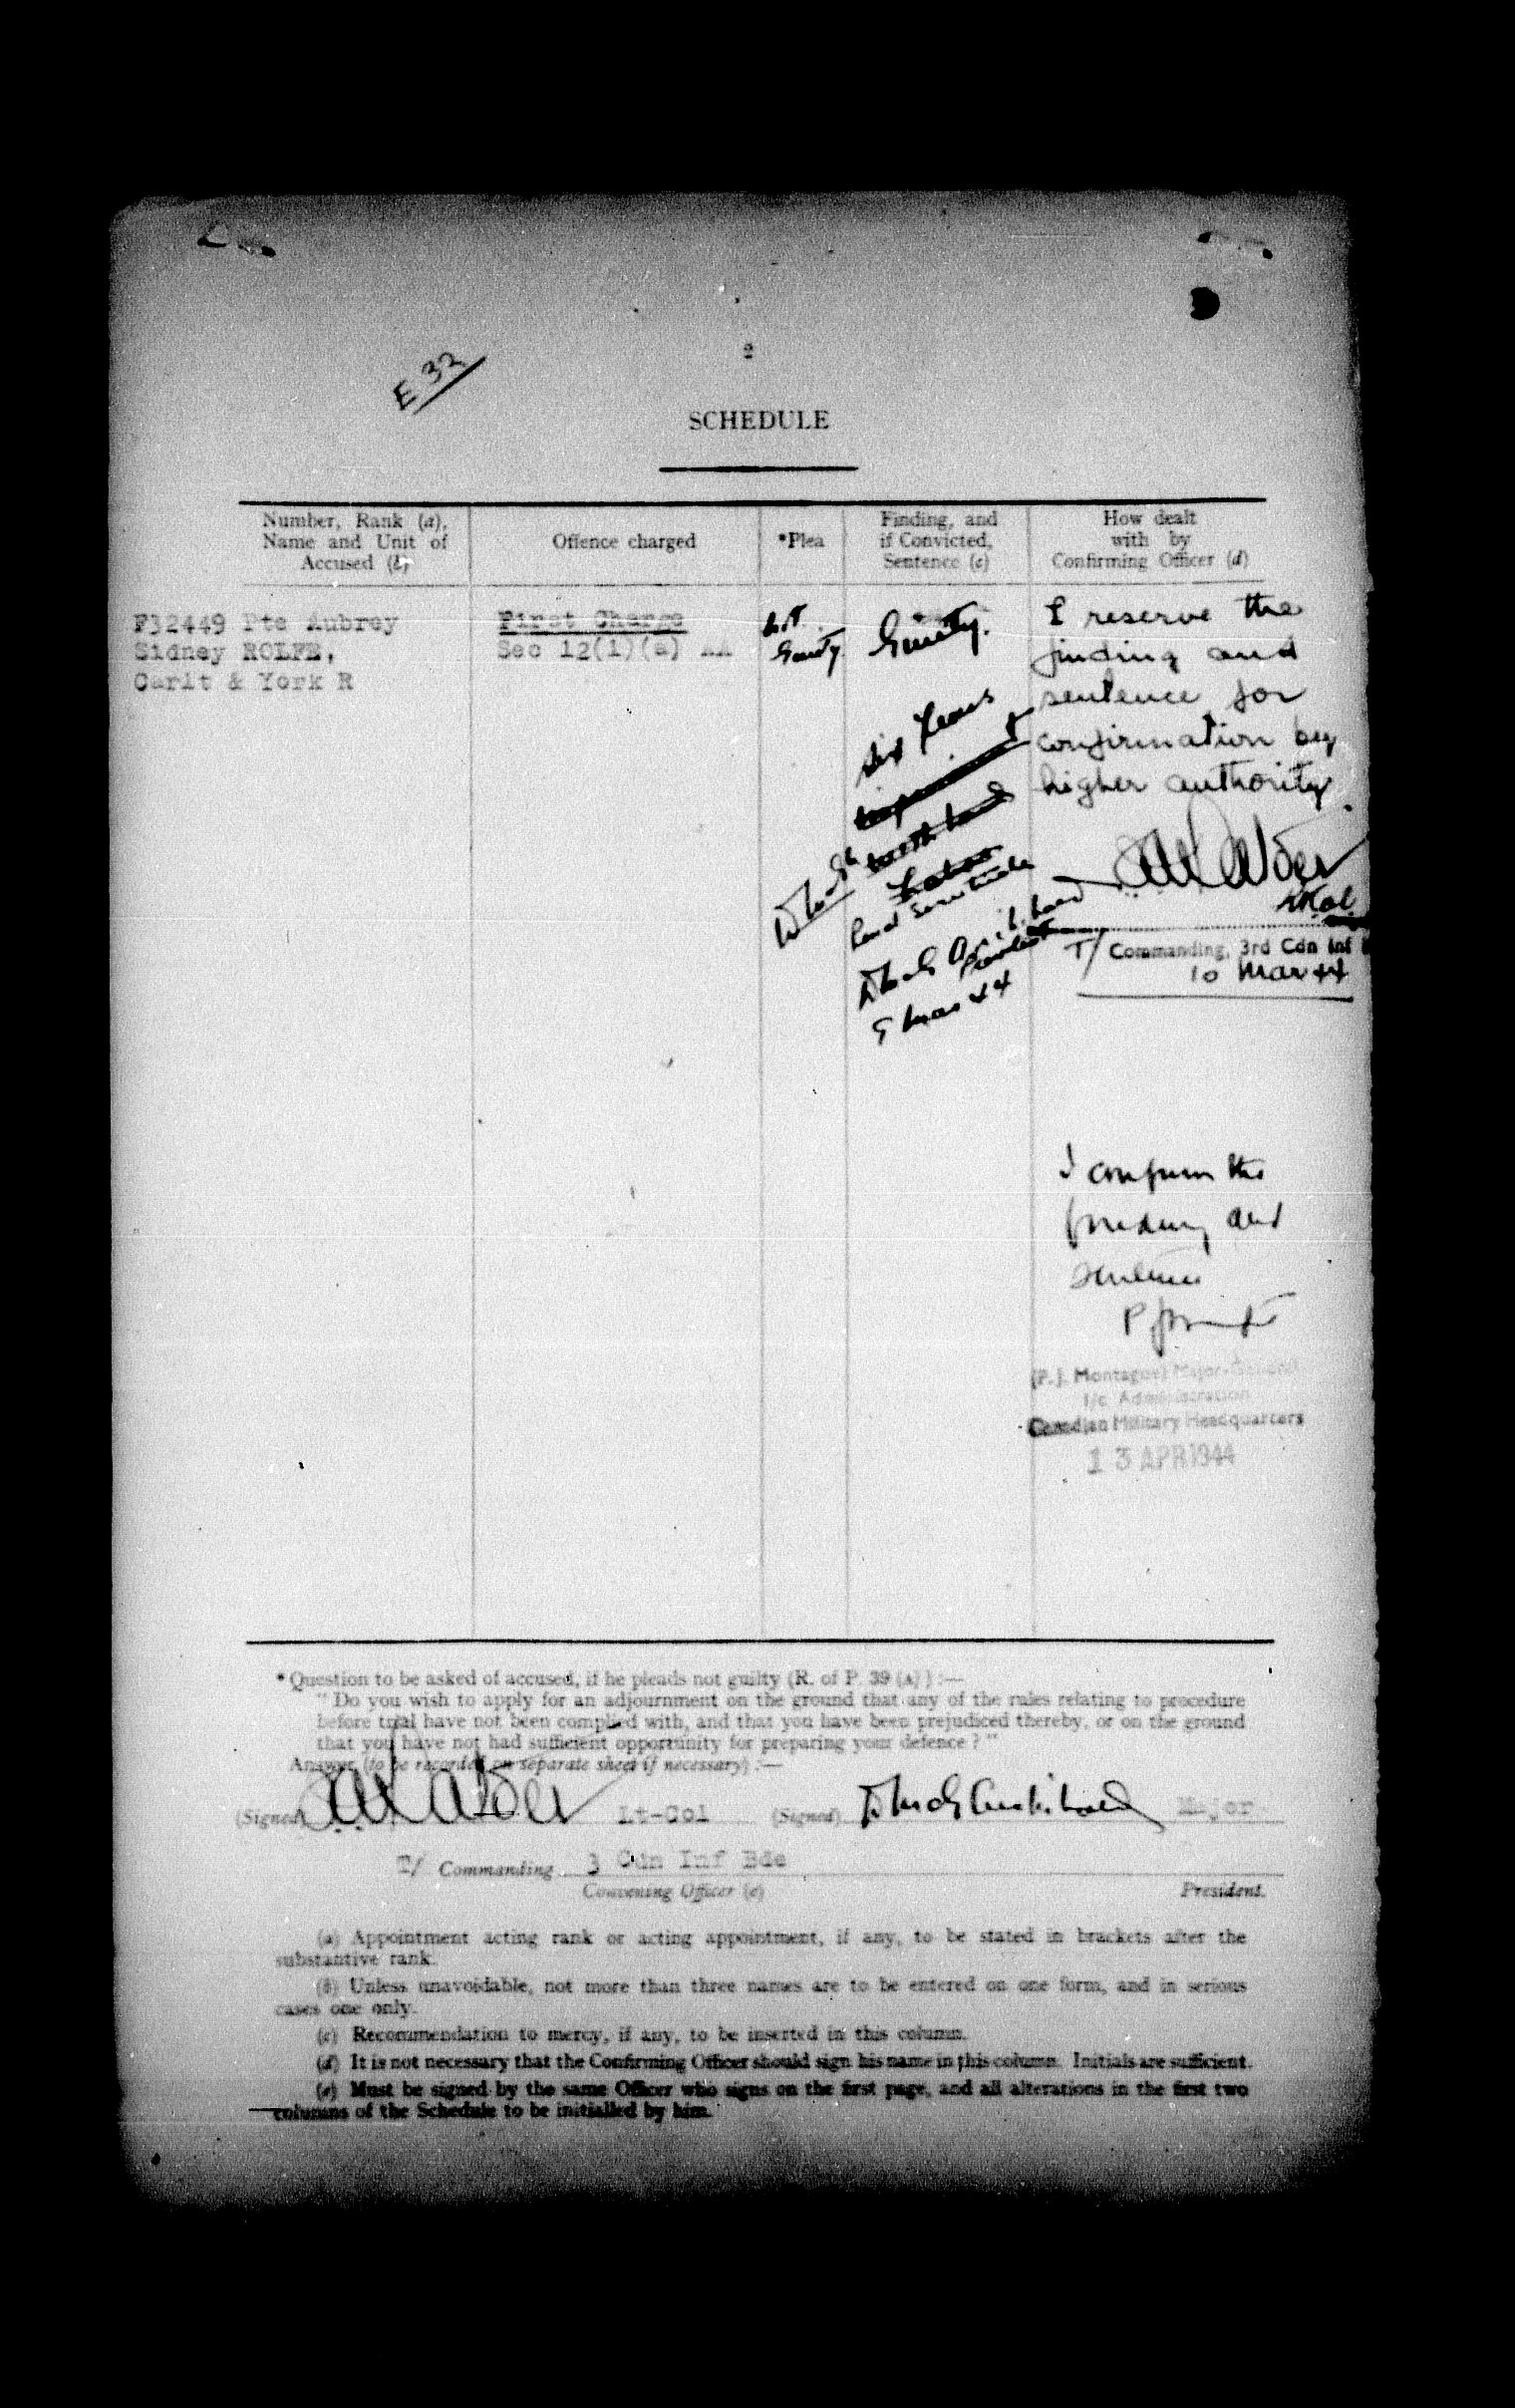 E 32
2
SCHEDULE
Number, Rank (a),
Name and Unit of
Accused (b)
Offence charged
*Plea
Finding, and
if Convicted,
Sentence (c)
How dealt
with by
Confirming Officer (d)
F32449 Pte Aubrey
Sidney ROLFE,
Carlt & York R
First Charge
Sec 12(1)(a) AA
Not
Guilty.
Guilty.
Six Years
imprisonment
with hard
Labor
Penal Servitude
President
9 Mar 44
I reserve the
finding and
sentence for
confirmation by
higher authority.
T/ Commanding, 3rd Cdn Inf
10 Mar 44
I confirm the
finding and
sentence
(P.J. Montague) Major-General
i/c Administration
Canadian Military Headquarters
13 APR 1944
*Question to be asked of accused, if he pleads not guilty (R. of P. 39 (A)) :—
"Do you wish to apply for an adjournment on the ground that any of the rules relating to procedure
before trial have not been complied with, and that you have been prejudiced thereby, or on the ground
that you have not had sufficient opportunity for preparing your defence ?"
Answer (to be recorded on separate sheet if necessary) :—
(Signed) Lt-Col (Signed) Major
T/ Commanding 3 Cdn Inf Bde
Convening Officer (e) President.
(a) Appointment acting rank or acting appointment, if any, to be stated in brackets after the
substantive rank.
(b) Unless unavoidable, not more than three names are to be entered on one form, and in serious
cases one only.
(c) Recommendation to mercy, if any, to be inserted in this column.
(d) It is not necessary that the Confirming Officer should sign his name in this column. Initials are sufficient.
(e) Must be signed by the same Officer who signs on the first page, and all alterations in the first two
columns of the Schedule to be initialled by him.